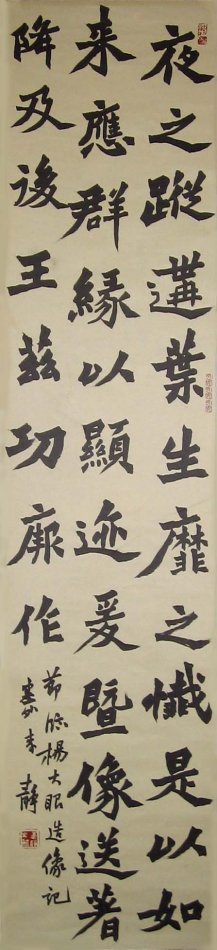 夜之蹤遘葉生靡之懺是以如
来應群緣以顯迹爰暨像送著
降及後王茲功厥作
節臨楊大眼造像記
靜